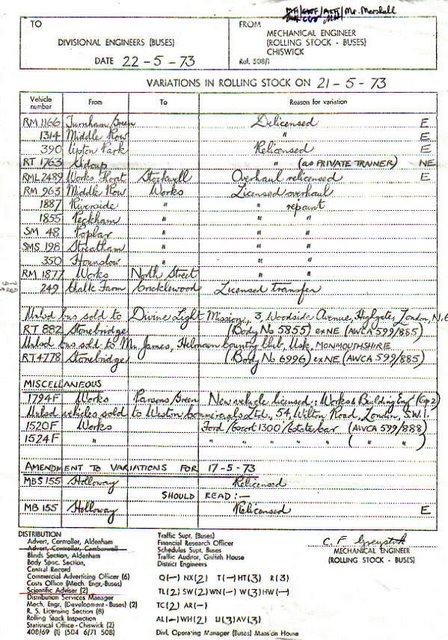 Mr. Marshall
TO
DIVISIONAL ENGINEERS (BUSES)
DATE 22-5-73
FROM
MECHANICAL ENGINEER
(ROLLING STOCK - BUSES)
CHISWICK
Ref. 508/1
VARIATIONS IN ROLLING STOCK ON 21-5-73
Vehicle number From To Reason for variation
RM 1166 Turnham Green Delicensed E
1314 Middle Row " E
390 Upton Park Relicensed E
RT 1763 Sidcup " (AS PRIVATE TRAINER) NE
RML 2489 Works Float Stockwell Overhaul relicensed E
RM 963 Middle Row Works Licensed overhaul
1887 Riverside " " repaint
1855 Peckham " " "
SM 48 Poplar " " "
SMS 198 Streatham " " "
350 Hounslow " " "
RM 1877 Works North Street " "
249 Chalk Farm Cricklewood Licensed transfer
Unlsd bus sold to Divine Light Mission, 3, Woodside Avenue, Highgate, London, N.6
RT 882 Stonebridge (Body No 5855) ex NE (AWCA 599/885)
Unlsd bus sold to Mr. James, Usk, MONMOUTHSHIRE
RT 4778 Stonebridge (Body No 6996) ex NE (AWCA 599/885)
MISCELLANEOUS
1794F Works Parsons Green New vehicle licensed: Works & Building Eng (Gp 2)
Unlsd vehicles sold to Weston Ltd, 54, Wilton Road, London, S.W.1.
1520F Works Ford Escort 1300 Estate car (AWCA 599/888)
1524F " " " " ( " " )
AMENDMENT TO VARIATIONS FOR 17-5-73
MBS 155 Holloway Relicensed
SHOULD READ:-
MB 155 Holloway Relicensed E
DISTRIBUTION
Advert. Controller, Aldenham
Advert. Controller, Camberwell
Blinds Section, Aldenham
Body Spec. Section,
Central Record
Commercial Advertising Officer (6)
Costs Office (Mech. Engr.-Buses)
Scientific Adviser (2)
Distribution Services Manager
Mech. Engr. (Development - Buses) (2)
R. S. Licensing Section (8)
Rolling Stock Inspection
Statistical Office (2)
408/69 (1) (504 6/71 508)
Traffic Supt. (Buses)
Financial Research Officer
Schedules Supt. Buses
Traffic Auditor, Griffith House
District Engineers
Q(—) NX(2) T(—) HT(3) R(3)
TL(2) SW(2) WN(—) W(3) HW(—)
TC(2) AR(—)
AL(—) WH(2) U(3) AV(3)
Divl. Operating Manager (Buses) Mansion House
MECHANICAL ENGINEER
(ROLLING STOCK - BUSES)